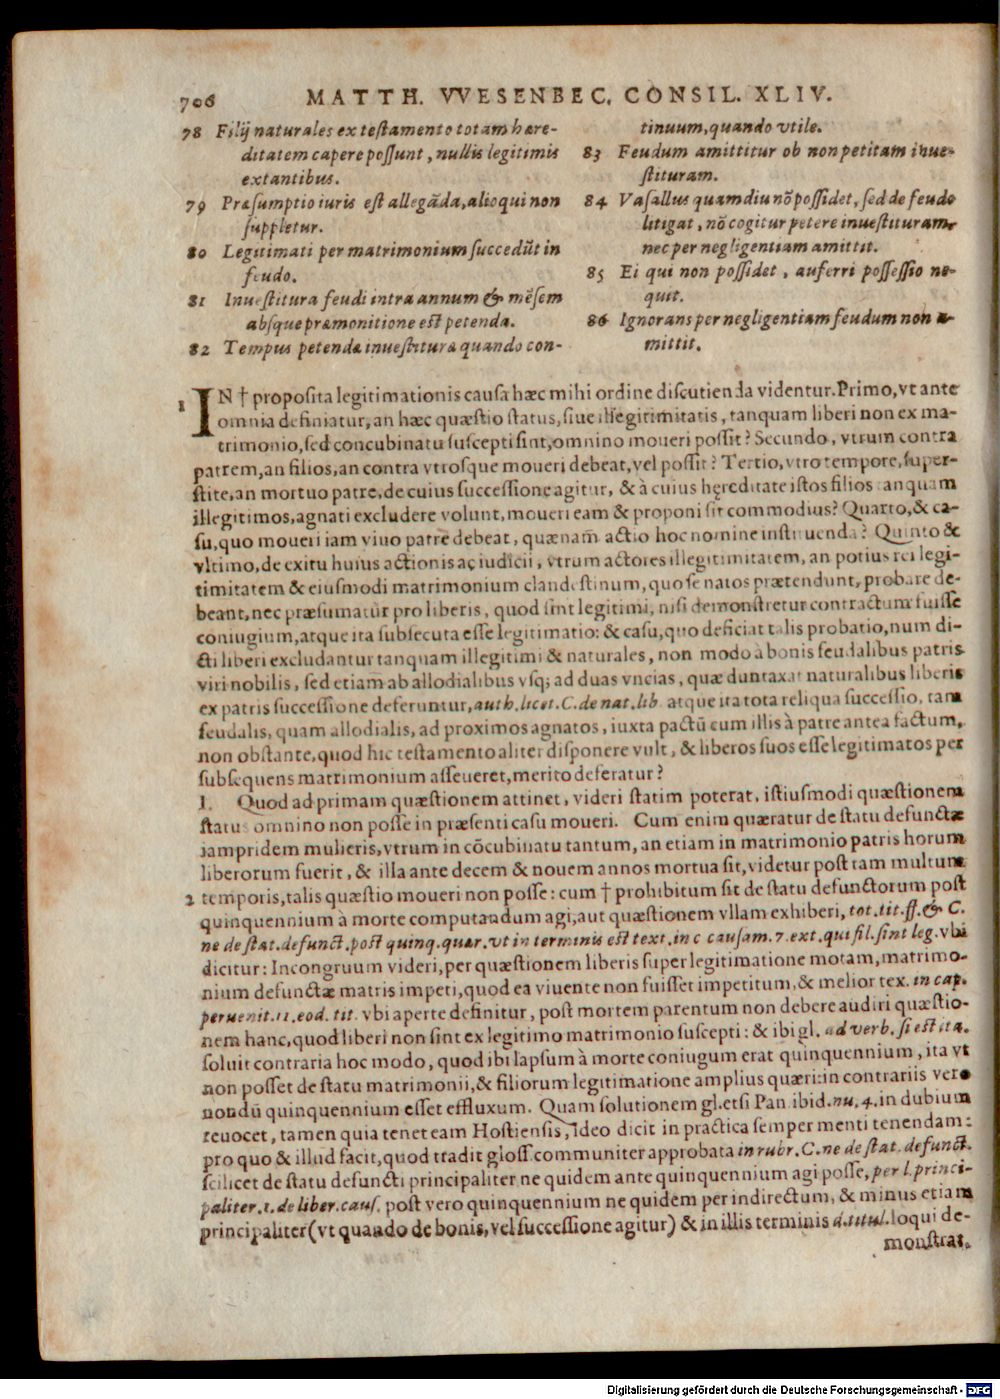 706 MATTH. VVESENBEC. CONSIL. XLIV.
78 Filij naturales ex testamento totam hære-
ditatem capere possunt, nullis legitimis
extantibus.
79 Præsumptio iuris est allegāda, alioqui non
suppletur.
80 Legitimati per matrimonium succedūt in
feudo.
81 Inuestitura feudi intra annum & mēsem
absque præmonitione est petenda.
82 Tempus petendæ inuestituræ quando con-
tinuum, quando vtile.
83 Feudum amittitur ob non petitam inue-
stituram.
84 Vasallus quamdiu nō possidet, sed de feudo
litigat, nō cogitur petere inuestituram,
nec per negligentiam amittit.
85 Ei qui non possidet, auferri possessio ne-
quit.
86 Ignorans per negligentiam feudum non a-
mittit.
1 IN † proposita legitimationis causa hæc mihi ordine discutienda videntur. Primo, vt ante
omnia definiatur, an hæc quæstio status, siue illegitimitatis, tanquam liberi non ex ma-
trimonio, sed concubinatu suscepti sint, omnino moueri possit? Secundo, vtrum contra
patrem, an filios, an contra vtrosque moueri debeat, vel possit? Tertio, vtro tempore, super-
stite, an mortuo patre, de cuius successione agitur, & à cuius hęreditate istos filios tanquam
illegitimos, agnati excludere volunt, moueri eam & proponi sit commodius? Quarto, & ca-
su, quo moueri iam viuo patre debeat, quænam actio hoc nomine instituenda? Quinto &
vltimo, de exitu huius actionis ac iudicii, vtrum actores illegitimitatem, an potius rei legi-
timitatem & eiusmodi matrimonium clandestinum, quo se natos prætendunt, probare de-
beant, nec præsumatur pro liberis, quod sint legitimi, nisi demonstretur contractum fuisse
coniugium, atque ita subsecuta esse legitimatio: & casu, quo deficiat talis probatio, num di-
cti liberi excludantur tanquam illegitimi & naturales, non modo à bonis feudalibus patris
viri nobilis, sed etiam ab allodialibus vsq; ad duas vncias, quæ duntaxat naturalibus liberis
ex patris successione deferuntur, auth. licet. C. de nat. lib. atque ita tota reliqua successio, tam
feudalis, quam allodialis, ad proximos agnatos, iuxta pactū cum illis à patre antea factum,
non obstante, quod hic testamento aliter disponere vult, & liberos suos esse legitimatos per
subsequens matrimonium asseueret, merito deferatur?
I. Quod ad primam quæstionem attinet, videri statim poterat, istiusmodi quæstionem
status omnino non posse in præsenti casu moueri. Cum enim quæratur de statu defunctæ
iampridem mulieris, vtrum in cōcubinatu tantum, an etiam in matrimonio patris horum
liberorum fuerit, & illa ante decem & nouem annos mortua sit, videtur post tam multum
2 temporis, talis quæstio moueri non posse: cum † prohibitum sit de statu defunctorum post
quinquennium à morte computandum agi, aut quæstionem vllam exhiberi, tot. tit. ff. & C.
ne de stat. defunct. post quinq. quær. vt in terminis est text. in c causam. 7. ext. qui fil. sint leg. vbi
dicitur: Incongruum videri, per quæstionem liberis super legitimatione motam, matrimo-
nium defunctæ matris impeti, quod ea viuente non fuisset impetitum, & melior tex. in cap.
peruenit. 11. eod. tit. vbi aperte definitur, post mortem parentum non debere audiri quæstio-
nem hanc, quod liberi non sint ex legitimo matrimonio suscepti: & ibi gl. ad verb. si est ita.
soluit contraria hoc modo, quod ibi lapsum à morte coniugum erat quinquennium, ita vt
non posset de statu matrimonii, & filiorum legitimatione amplius quæri: in contrariis vero
nondū quinquennium esset effluxum. Quam solutionem gl. etsi Pan ibid. nu. 4. in dubium
reuocet, tamen quia tenet eam Hostiensis, Ideo dicit in practica semper menti tenendam:
pro quo & illud facit, quod tradit gloss. communiter approbata in rubr. C. ne de stat. defunct.
scilicet de statu defuncti principaliter ne quidem ante quinquennium agi posse, per l. princi-
paliter. 1. de liber. caus. post vero quinquennium ne quidem per indirectum, & minus etiam
principaliter (vt quando de bonis, vel successione agitur) & in illis terminis d. titul. loqui de-
monstrat.
Digitalisierung gefördert durch die Deutsche Forschungsgemeinschaft - DFG